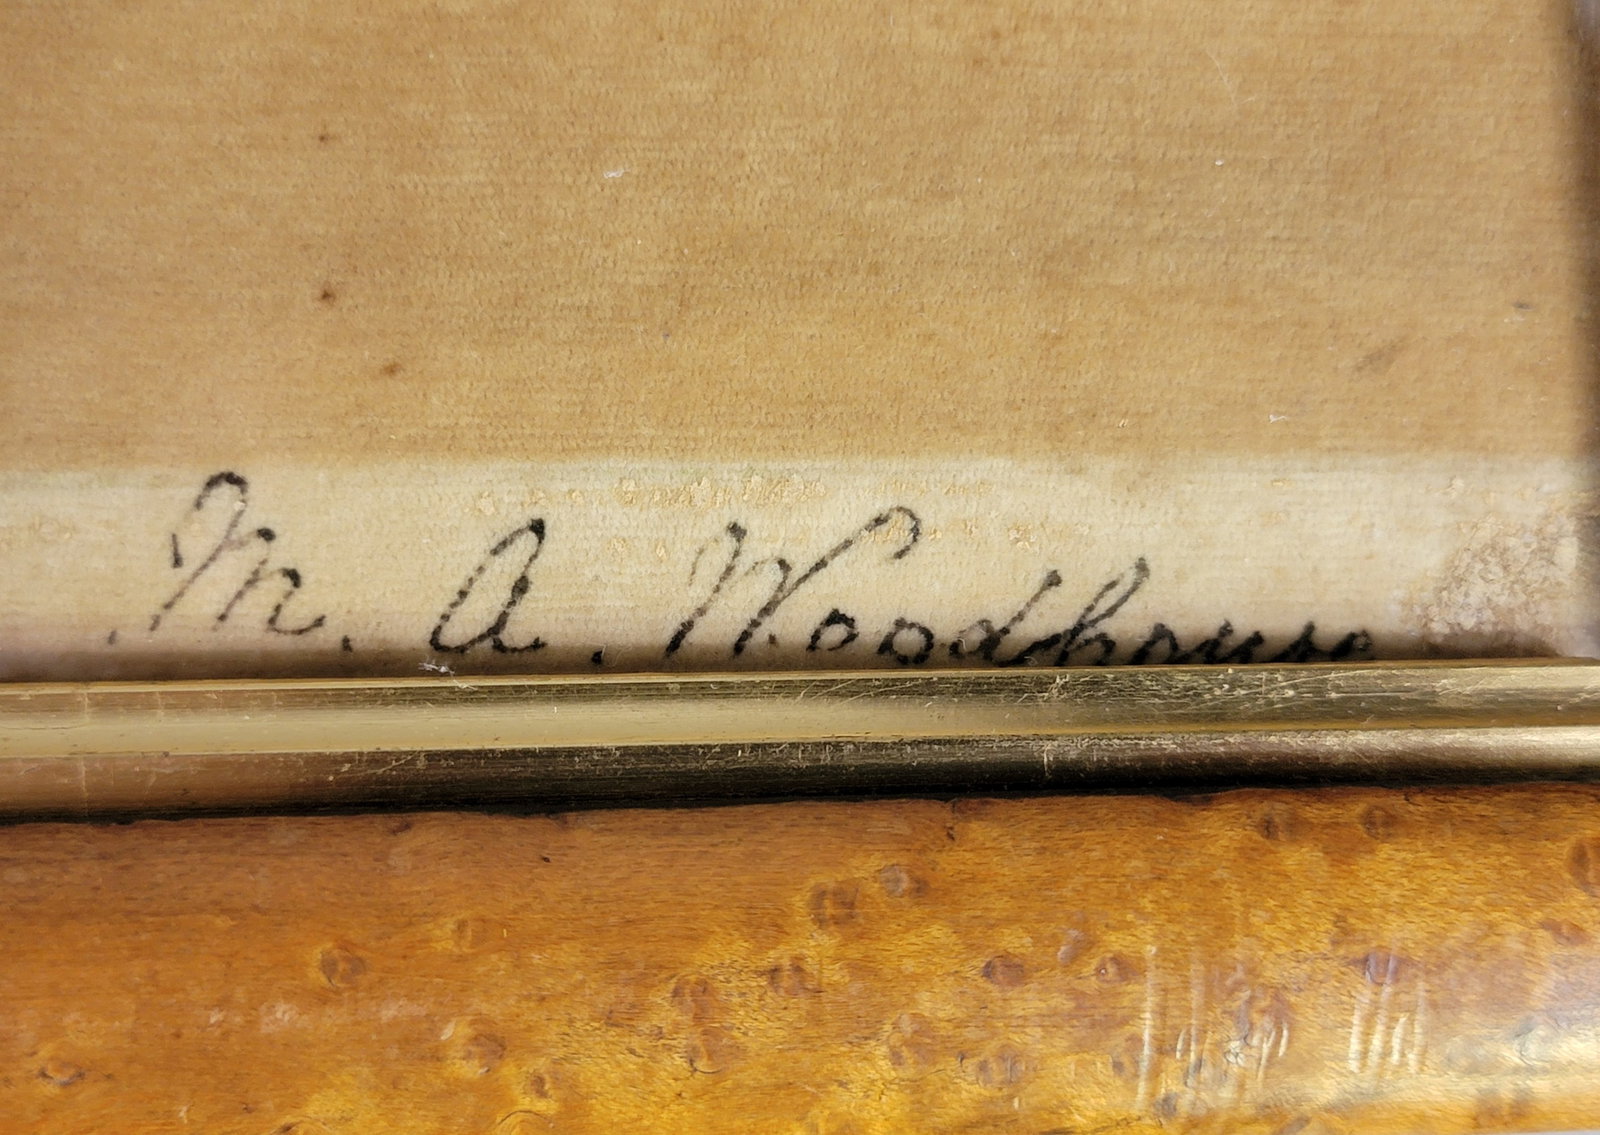 M. A. Woodhouse